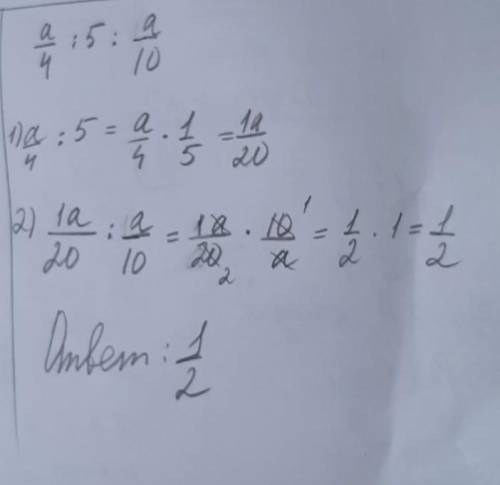 a/4 : 5 : a/10
1) a/4 : 5 = a/4 · 1/5 = 1a/20
2) 1a/20 : a/10 = 1a/20 2 · 10 1/a = 1/2 · 1 = 1/2
Ответ : 1/2